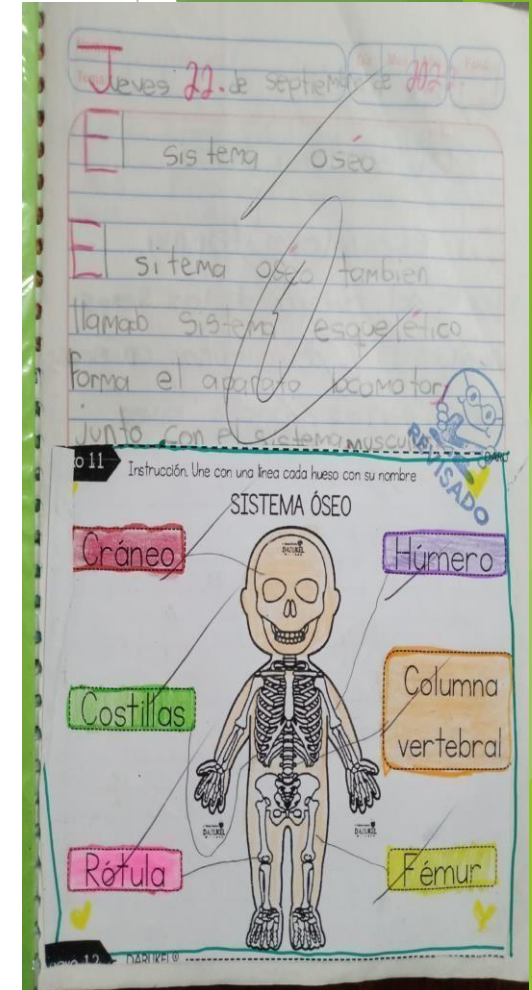 Jueves 22. de septiembre de 202
El sistema óseo
El sitema oseo tambien
llamado sistema esquelético
forma el aparato locomotor
junto con el sistema muscul
REVISADO
DARU
o 11
Instrucción. Une con una línea cada hueso con su nombre
SISTEMA ÓSEO
DARUKEL
Cráneo
Húmero
Costillas
Columna
vertebral
DARUKEL
DARUKEL
Rótula
Fémur
12
DARUKEL®